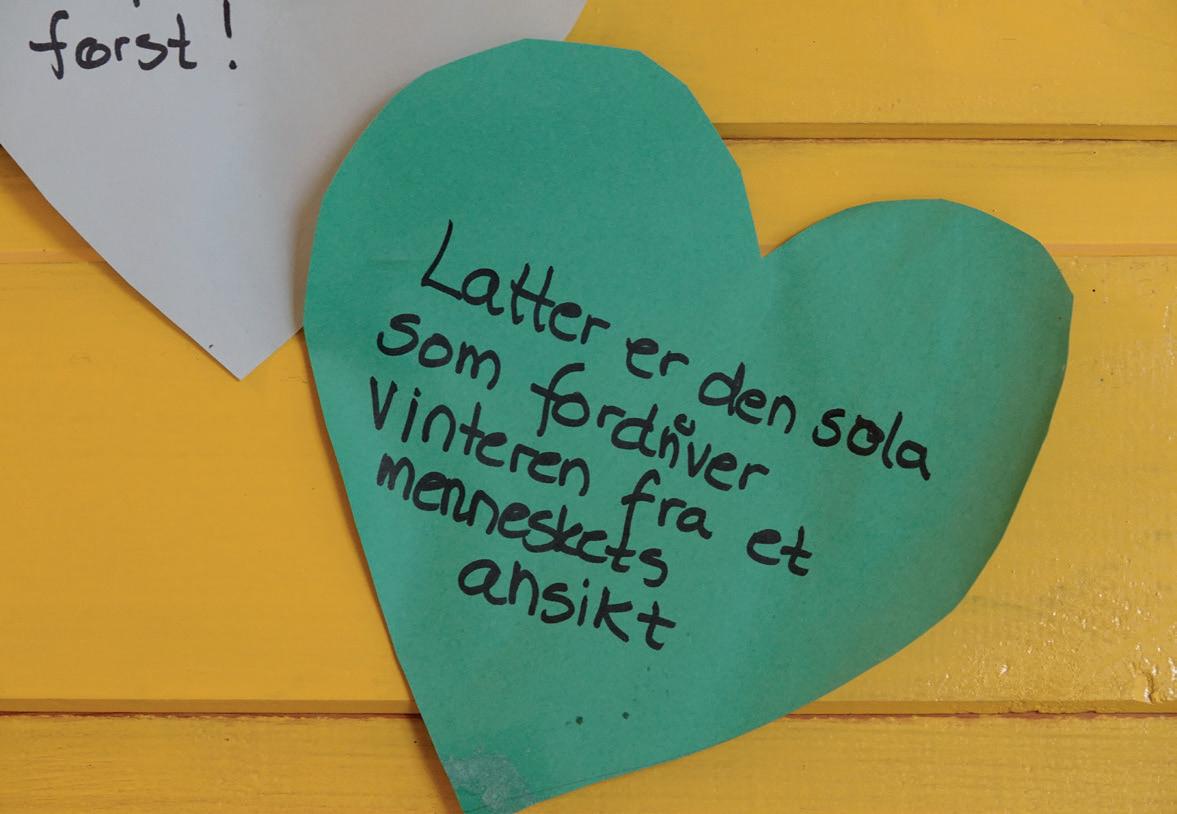 først!
Latter er den sola
som fordriver
Vinteren fra et
menneskets
ansikt